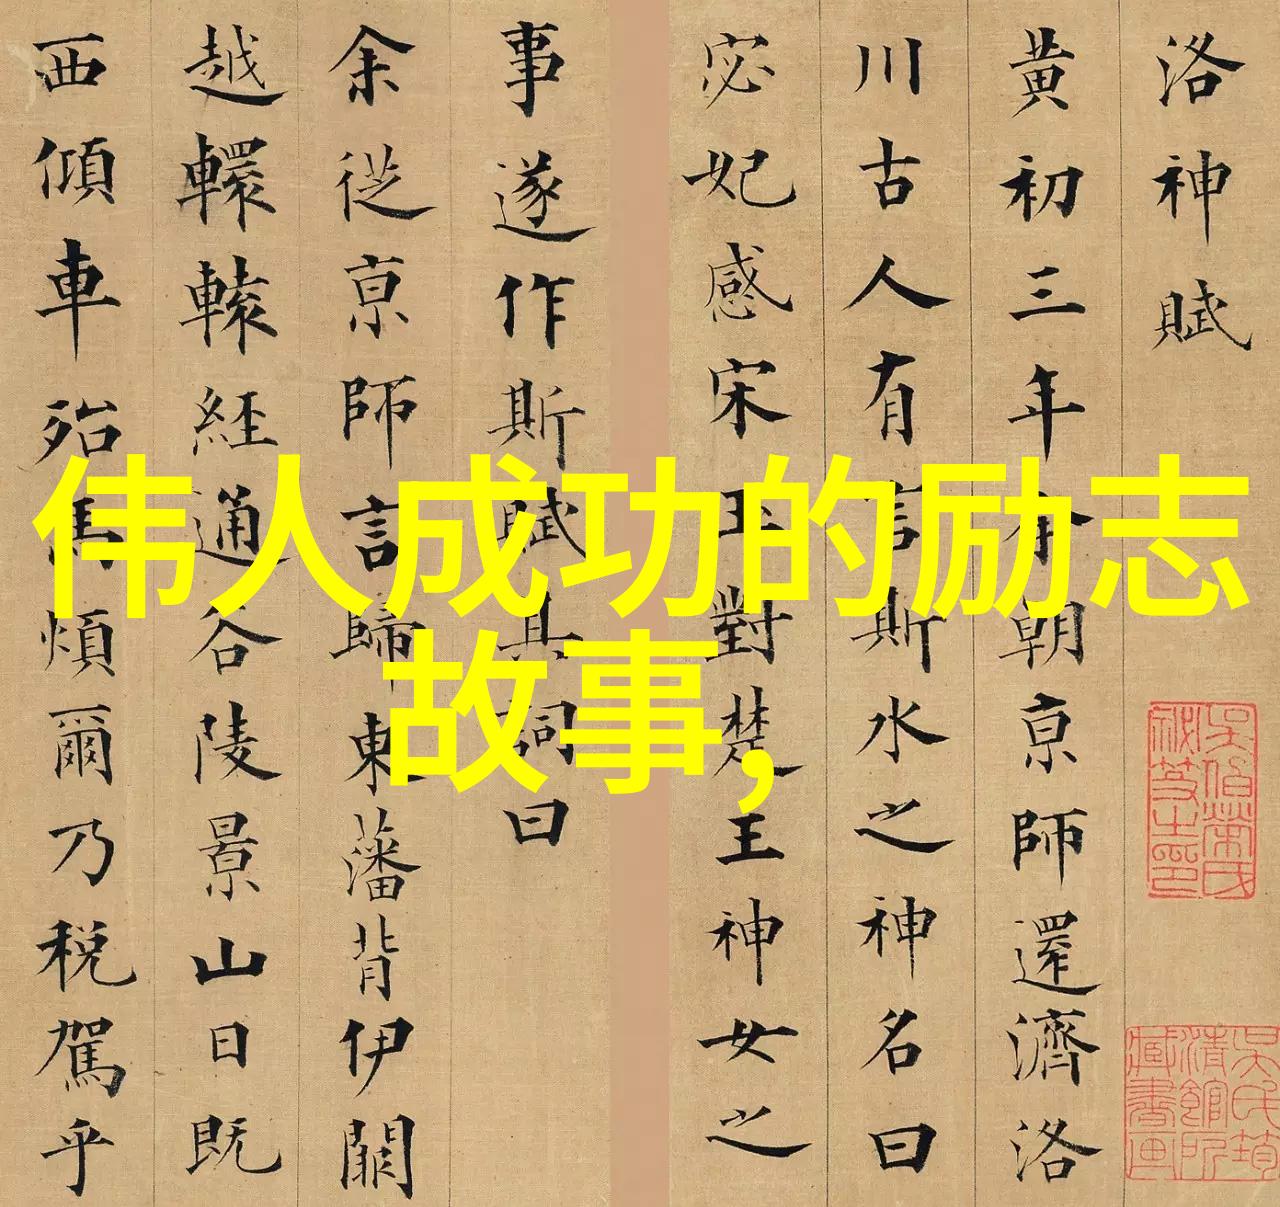 伟人成功的励志
故事,
洛神賦
黃初三年余朝京師還濟洛
川古人有言斯水之神名曰
宓妃感宋玉對楚王神女之
事遂作斯賦其詞曰
余從京師言歸東藩背伊闕
越轘轅經通谷陵景山日既
西傾車殆馬煩爾乃稅駕乎
吳氏筠清館所藏書画